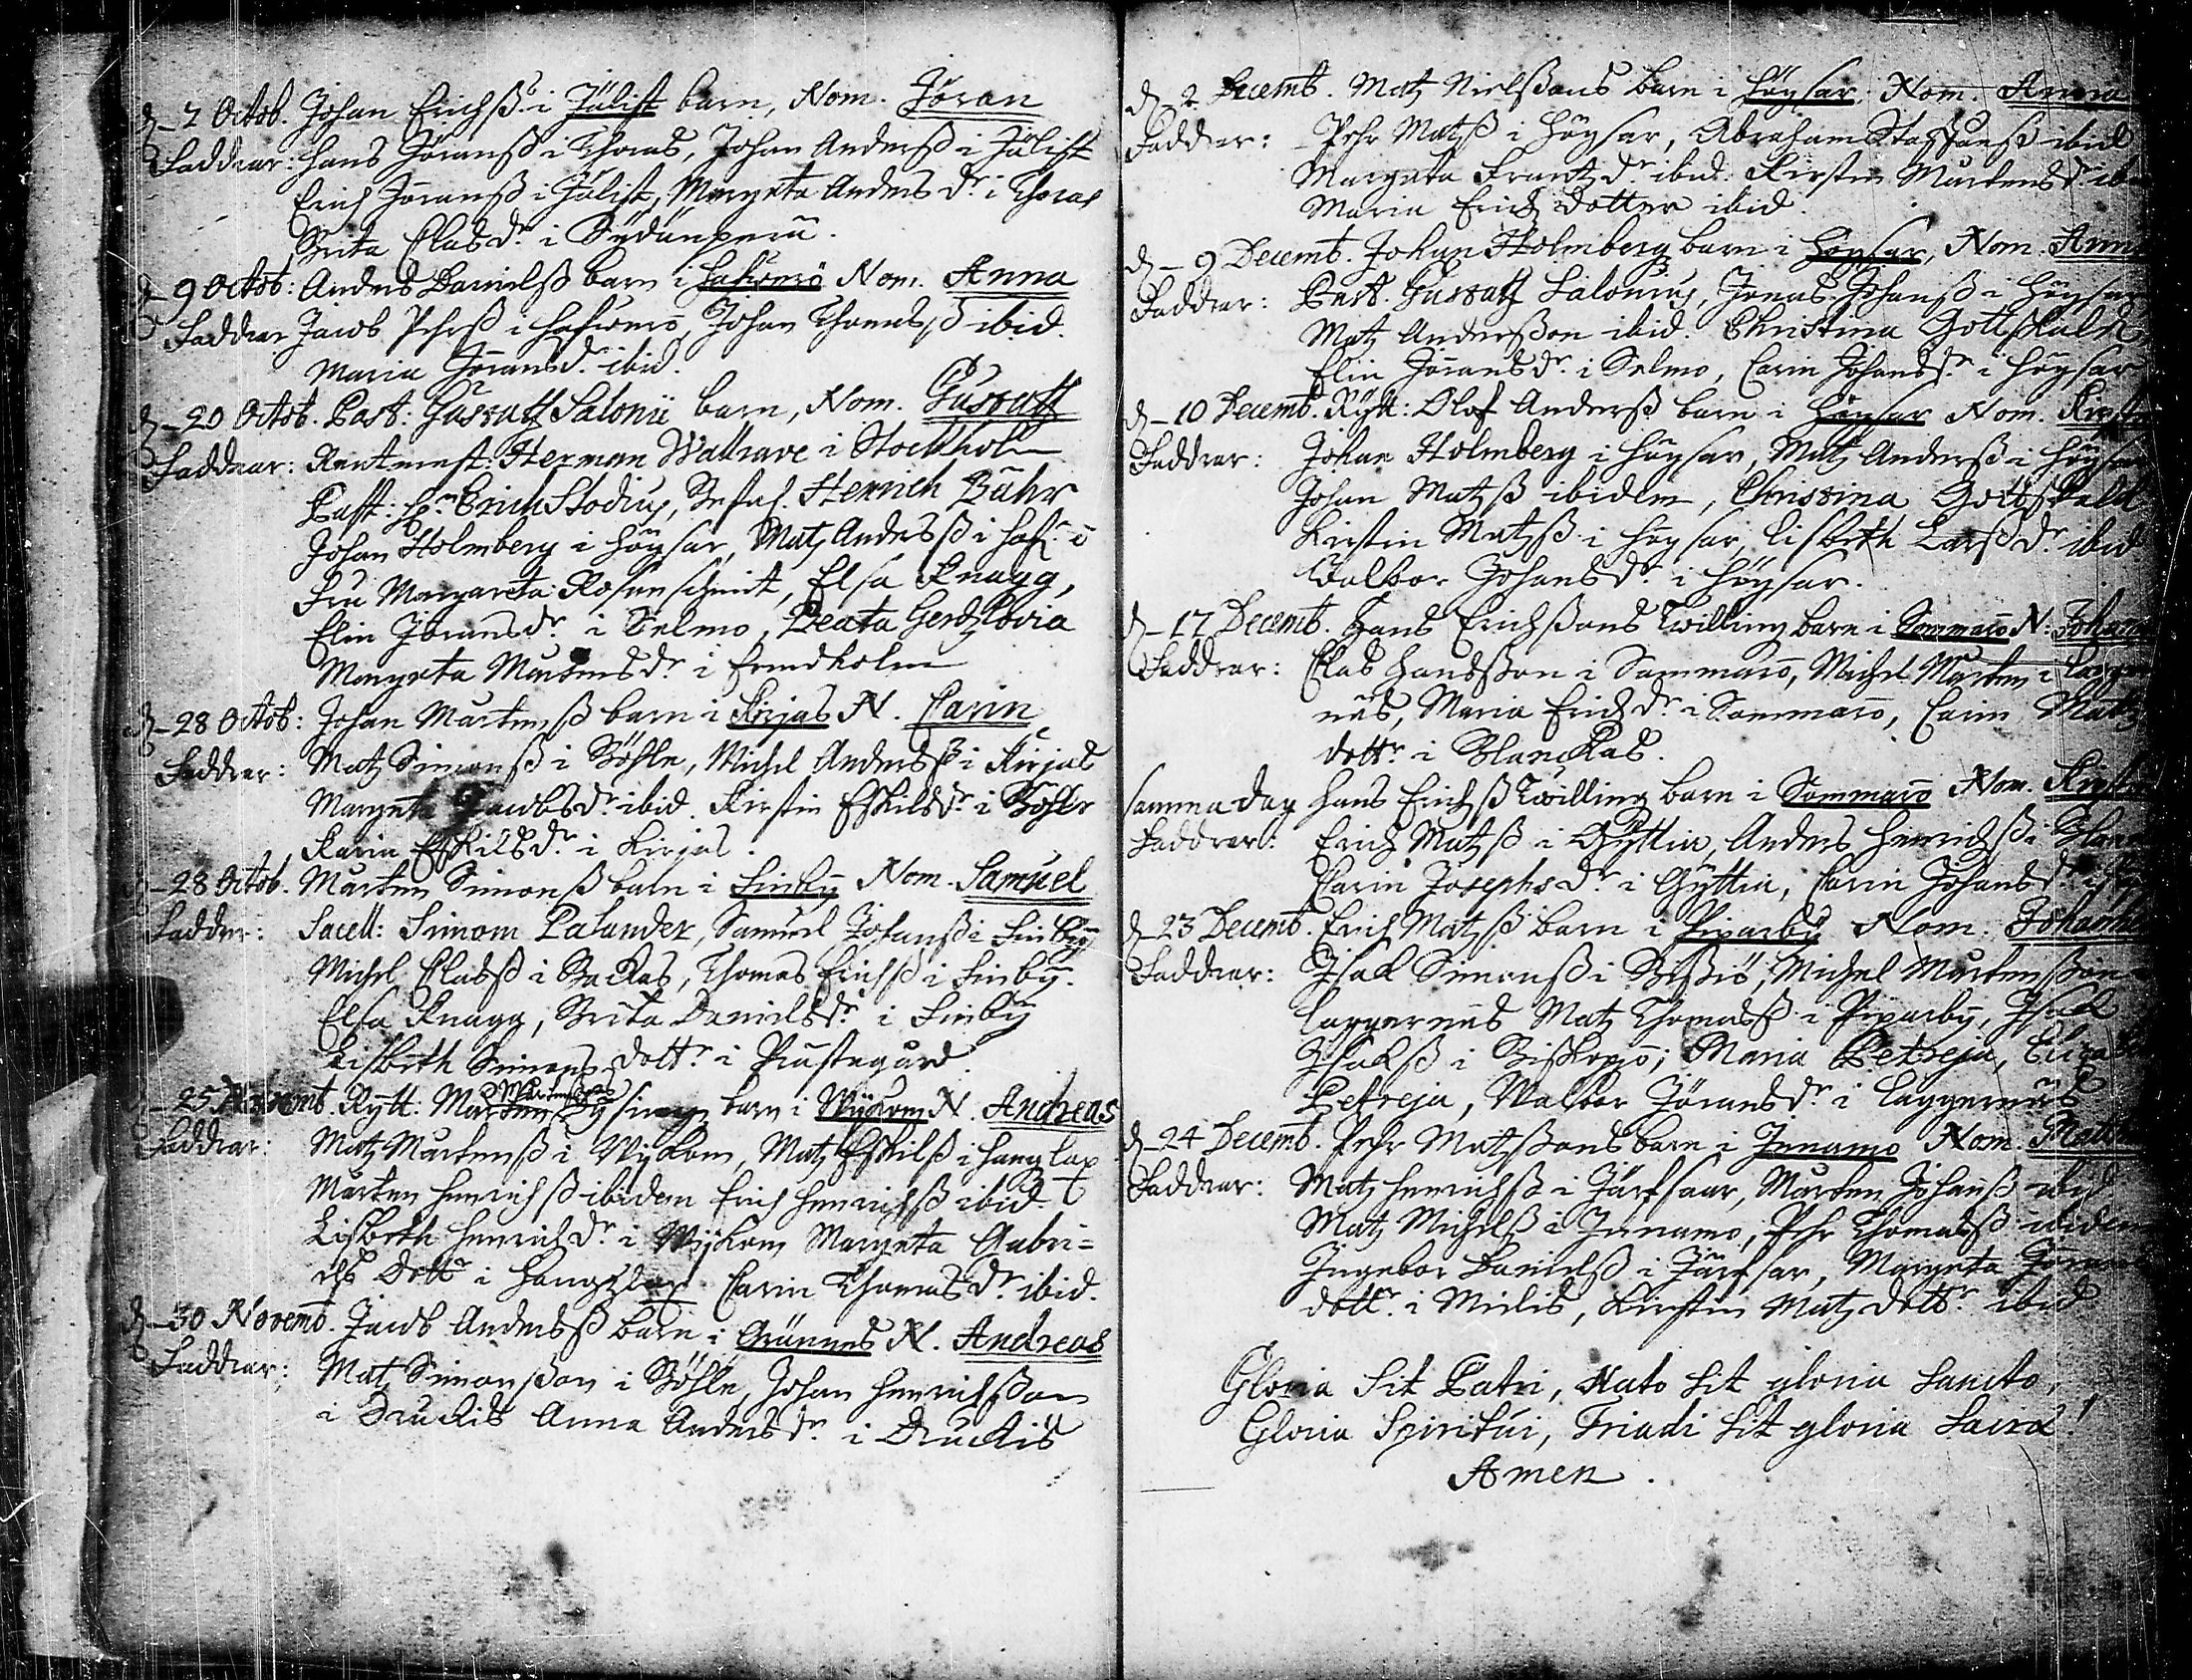 d. 2 Octob. Johan Erichß i Jälist barn, Nom. Jöran
Faddrar: Hans Jöranß i Thoras, Johan Anderß i Jälist
Erich Jöranß i Jälist, Margeta Anders dr. i Thoras
Brita Clas dr. i Sydänperä.
d. 9 Octob: Anders Danielß barn i Hafwerö Nom. Anna
Faddrar Jacob Pehrß i Hafwerö, Johan Thomasß ibid.
Maria Jörans dr. ibid.
d. 20 Octob. Past: Gustaff Salonii barn, Nom. Gustaff
Faddrar: Rentmest: Herman Wattrave i Stockholm
Past: Hr. Erich Stodius, Befal. Henrich Bähr
Johan Holmberg i Höysar, Matz Andersß i Haf.ö
Fru Margareta Rosenschmit, Elsa Knagg,
Elin Jörans dr. i Selmo, Beata Gertzlovia
Margeta Mårtens dr. i Ernholm
d. 28 Octob: Johan Mårtenß barn i Kirjas N. Carin
Faddrar: Matz Simonß i Böhle, Michel Andersß i Kirjas
Margeta Jacobs dr. ibid. Kirstin Eskils dr. i Böhle
Karin Eskils dr. i Kirjas.
d. 28 Octob. Mårten Simonß barn i Finby Nom. Samuel
Faddrar: Sacell: Simon Palander, Samuel Johanß i Finby
Michel Clasß i Backas, Thomas Erichß i Finby.
Elsa Knagg, Brita Daniels dr. i Finby
Lisbeth Simons dottr. i Prästegård
25 Novemb. Rytt: Mårten Mårtenson barn i Wykom N. Andreas
Faddrar: Matz Mårtenß i Wykom, Matz Eskilß i Hanglax
Mårten Henrichß ibidem Erich Henrichß ibid.
Lisbeth Henrich dr. i Wykom Margeta Gabri-
els Dottr. i Hanglax Carin Thomas dr. ibid.
d. 30 Novemb. Jacob Andersß barn i Grännäs N. Andreas
Faddrar: Matz Simonßon i Böhle, Johan Henrichßon
i Druckis Anna Anders dr. i Druckis
d. 2 Decemb. Matz Nielßons barn i Höysar, Nom. Anna
Faddrar: Pehr Matzß i Höysar, Abraham Staffanß ibid
Margeta Frantz dr. ibid. Kirstin Mårtens dr. ib
Maria Erichs dotter ibid.
d. 9 Decemb. Johan Holmberg barn i Höysar, Nom. Anna
Faddrar: Past. Gustaff Salonius, Jonas Johanß i Höysar
Matz Anderßon ibid. Christina Gottskalk
Elin Jörans dr. i Selmo, Carin Johans dr. i Höysar
d. 10 Decemb. Rytt: Olof Anderß barn i Höysar Nom. Kirst
Faddrar: Johan Holmberg i Höysar, Matz Anderß i Höysar
Johan Matzß ibidem, Christina Gottskalk
Kirstin Matzß i Höysar, Lisbeth Larß dr. ibid
Walbor Johans dr. i Höysar.
d. 17 Decemb. Hans Erichßons Twilling barn i Sommarö N: Johan
Faddrar: Clas Hansßon i Sommarö, Michel Mårten i Lagger
näs, Maria Erich dr. i Sommarö, Carin Matz
dottr. i Blanckas.
samma dag Hans Erichß Twilling barn i Sommarö Nom. Kirst
Faddrar: Erich Matzß i Gyttia, Anders Henrichß i Blan
Carin Josephs dr. i Gyttia, Carin Johans dr. i
d. 23 Decemb. Erich Matzß barn i Piparby Nom. Johann
Faddrar: Isak Simonß i Biskö, Michel Mårtenßon
Laggernäs Matz Thomasß i Piparby, Isak
Isakß i Biskopsö, Maria Petreja, Elisa
Petreja, Walbor Jörans dr. i Laggernäs
d. 24 Decemb. Pehr Matzßons barn i Innamo Nom. Matth
Faddrar: Matz Henrichß i Järfsaar, Mårten Johanß ibid
Matz Michelß i Innamo, Pehr Thomasß ibidem
Ingebor Danielß i Järfsar, Margeta Jöran
dottr. i Mielis, Kirstin Matz dottr. ibid
Gloria Sit Patri, Nato Sit gloria Sancto,
Gloria Spiritui, Triadi Sit gloria Sacræ!
Amen.